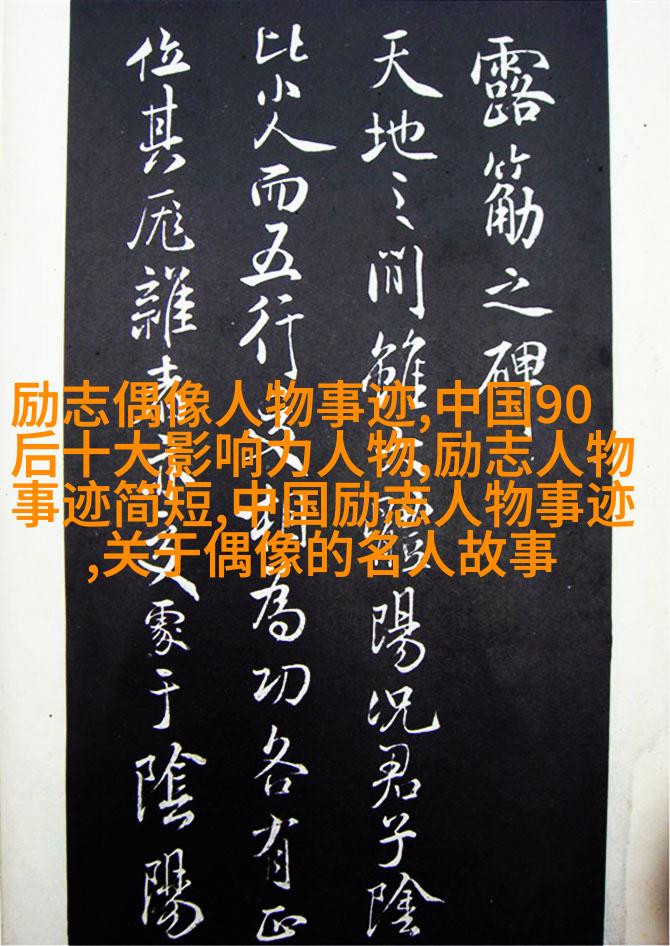 露筋之碑
天地之間雖陽況君子陰
比小人而五行為功各有正
位其厖雜于陰陽
励志偶像人物事迹,中国90
后十大影响力人物,励志人物
事迹简短,中国励志人物事迹
,关于偶像的名人故事